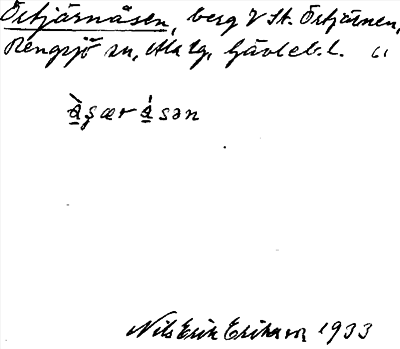 Örtjärnåsen, berg V St. Örtjärnen,
Rengsjö sn, Ala tg, Gävleb. l. 61
å̀ʂæråsən
Nils Erik Eriksson 1933